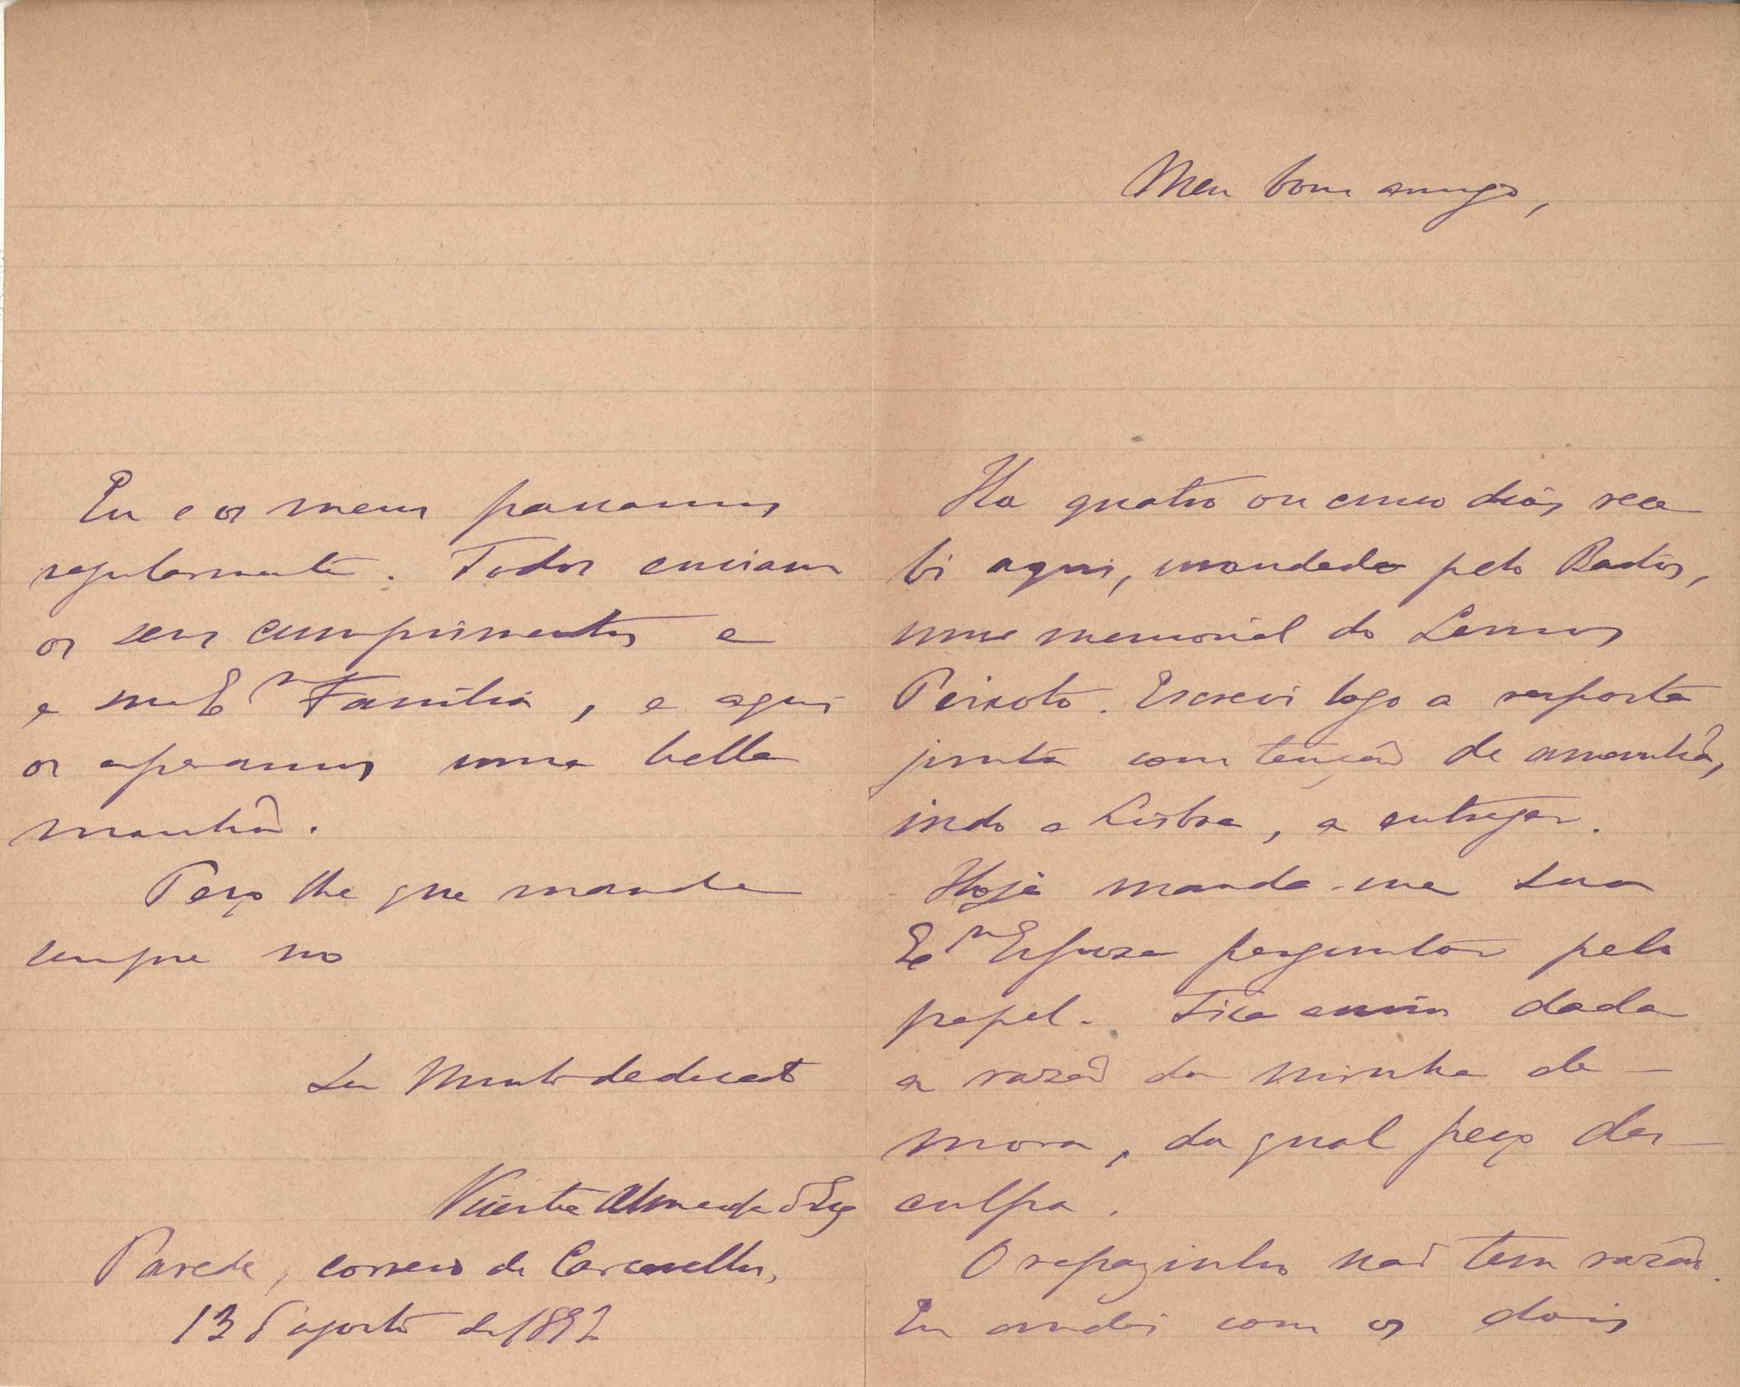 Meu bom amigo,
Ha quatro ou cinco dias rece
bi aqui, mandado pelo Bastos,
um memorial do Lemos
Peixoto. Escrevi logo a resposta
junta com tenção de amanhã,
indo a Lisboa, a entregar.
Hoje manda-me sua
Ex.ma Esposa perguntar pelo
papel. Fica assim dada
a razaõ da minha de-
mora, da qual peço des-
culpa.
O rapazinho naõ tem razaõ.
Eu andei com os dois
Eu e os meus passamos
regularmente. Todos enviam
os seus cumprimentos a
e Ex.ma Familia, e aqui
os esperamos uma bella
manhã.
Peço lhe que mande
sempre no
Seu Muito dedicado
Vicente Almeida d'Eça
Parede, correio de Carcavellos,
13 d'agosto de 1892